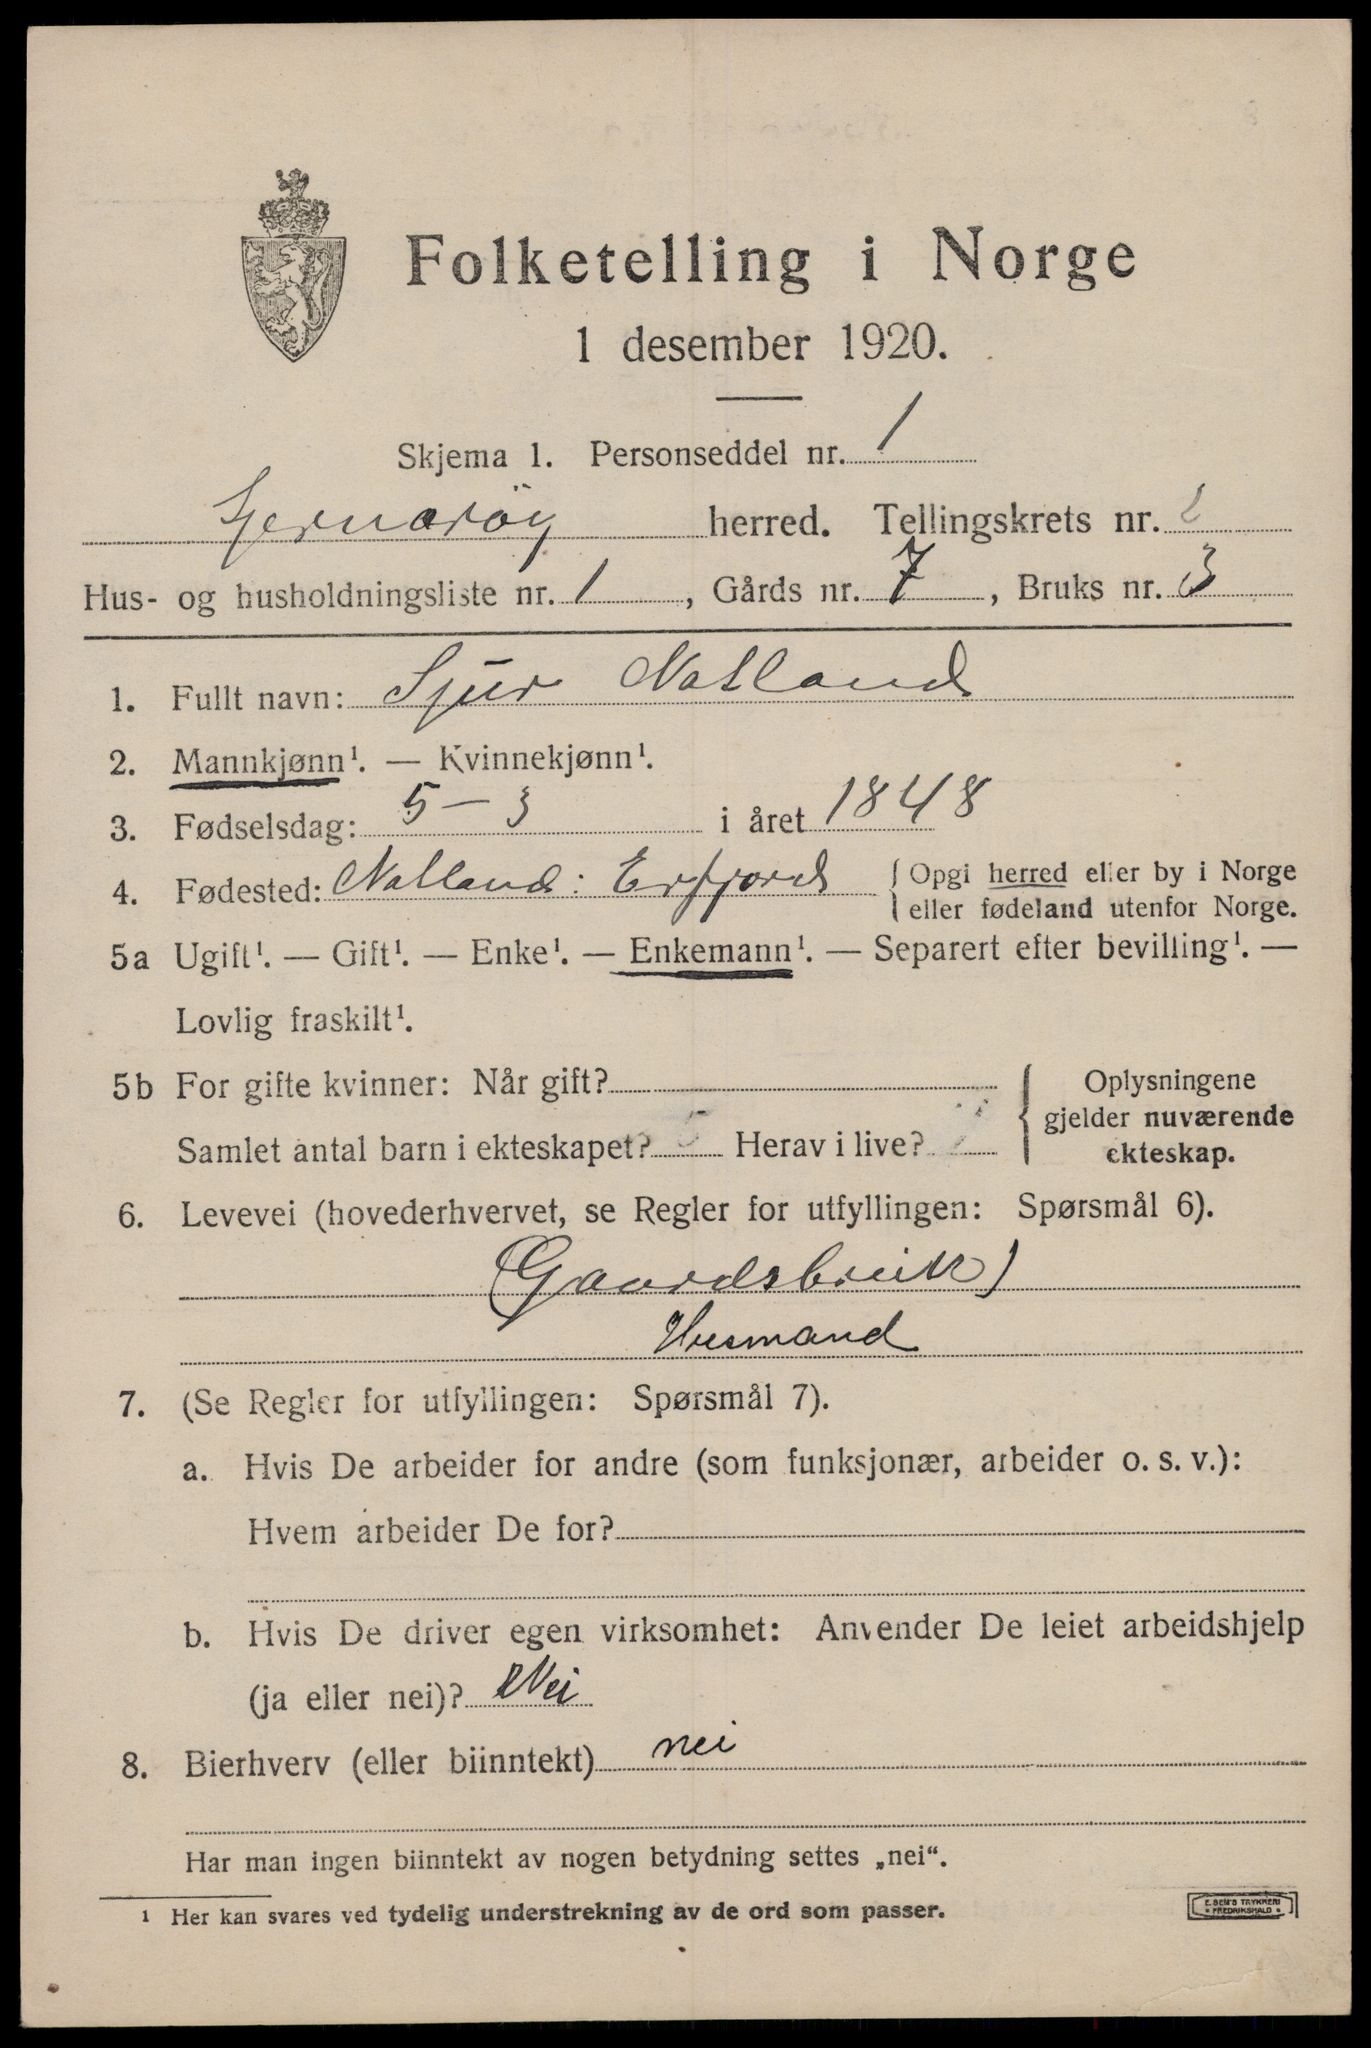 Folketelling i Norge
1 desember 1920.
Skjema 1. Personseddel nr. 1
Sjernarøy herred. Tellingskrets nr. 2
Hus- og husholdningsliste nr. 1, Gårds nr. 7, Bruks nr. 3
1. Fullt navn: Sjur Natland
2. Mannkjønn¹. — Kvinnekjønn¹.
3. Fødselsdag: 5–3 i året 1848
4. Fødested: Natland: Erfjord { Opgi herred eller by i Norge
eller fødeland utenfor Norge.
5a Ugift¹. — Gift¹. — Enke¹. — Enkemann¹. — Separert efter bevilling¹. —
Lovlig fraskilt¹.
5b For gifte kvinner: Når gift?
Samlet antal barn i ekteskapet? 5 Herav i live?
{ Oplysningene
gjelder nuværende
ekteskap.
6. Levevei (hovederhvervet, se Regler for utfyllingen: Spørsmål 6).
(Gaardsbruk)
Husmand
7. (Se Regler for utfyllingen: Spørsmål 7).
a. Hvis De arbeider for andre (som funksjonær, arbeider o. s. v.):
Hvem arbeider De for?
b. Hvis De driver egen virksomhet: Anvender De leiet arbeidshjelp
(ja eller nei)? Nei
8. Bierhverv (eller biinntekt) nei
Har man ingen biinntekt av nogen betydning settes „nei“.
¹ Her kan svares ved tydelig understrekning av de ord som passer.
E. SEM'S TRYKKERI
* FREDRIKSHALD *